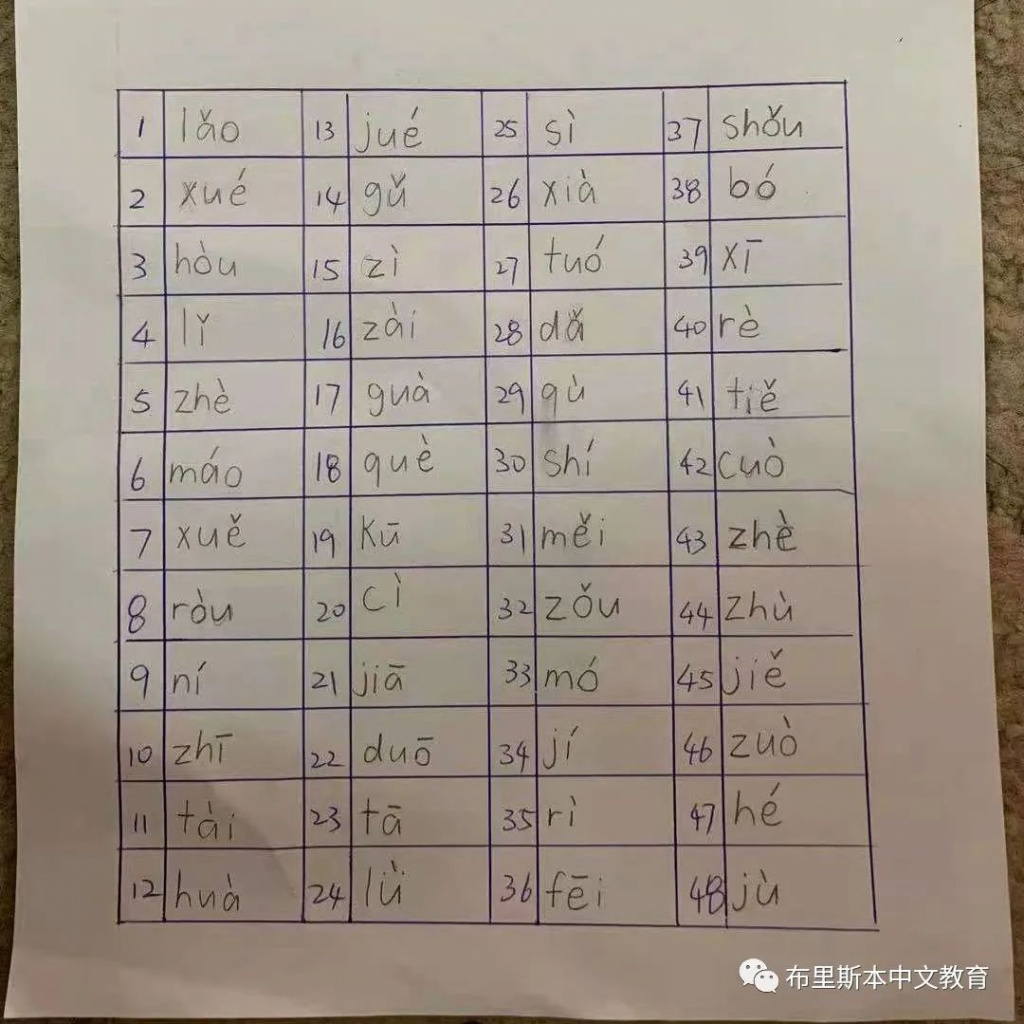 1 lǎo 13 jué 25 sì 37 shǒu
2 xué 14 gǔ 26 xià 38 bó
3 hòu 15 zì 27 tuó 39 xī
4 lǐ 16 zài 28 dǎ 40 rè
5 zhè 17 guà 29 qù 41 tiě
6 máo 18 què 30 shí 42 cuò
7 xuě 19 kū 31 měi 43 zhè
8 ròu 20 cì 32 zǒu 44 zhù
9 ní 21 jiā 33 mó 45 jiě
10 zhī 22 duō 34 jí 46 zuò
11 tài 23 tā 35 rì 47 hé
12 huà 24 lǜ 36 fēi 48 jù
布里斯本中文教育